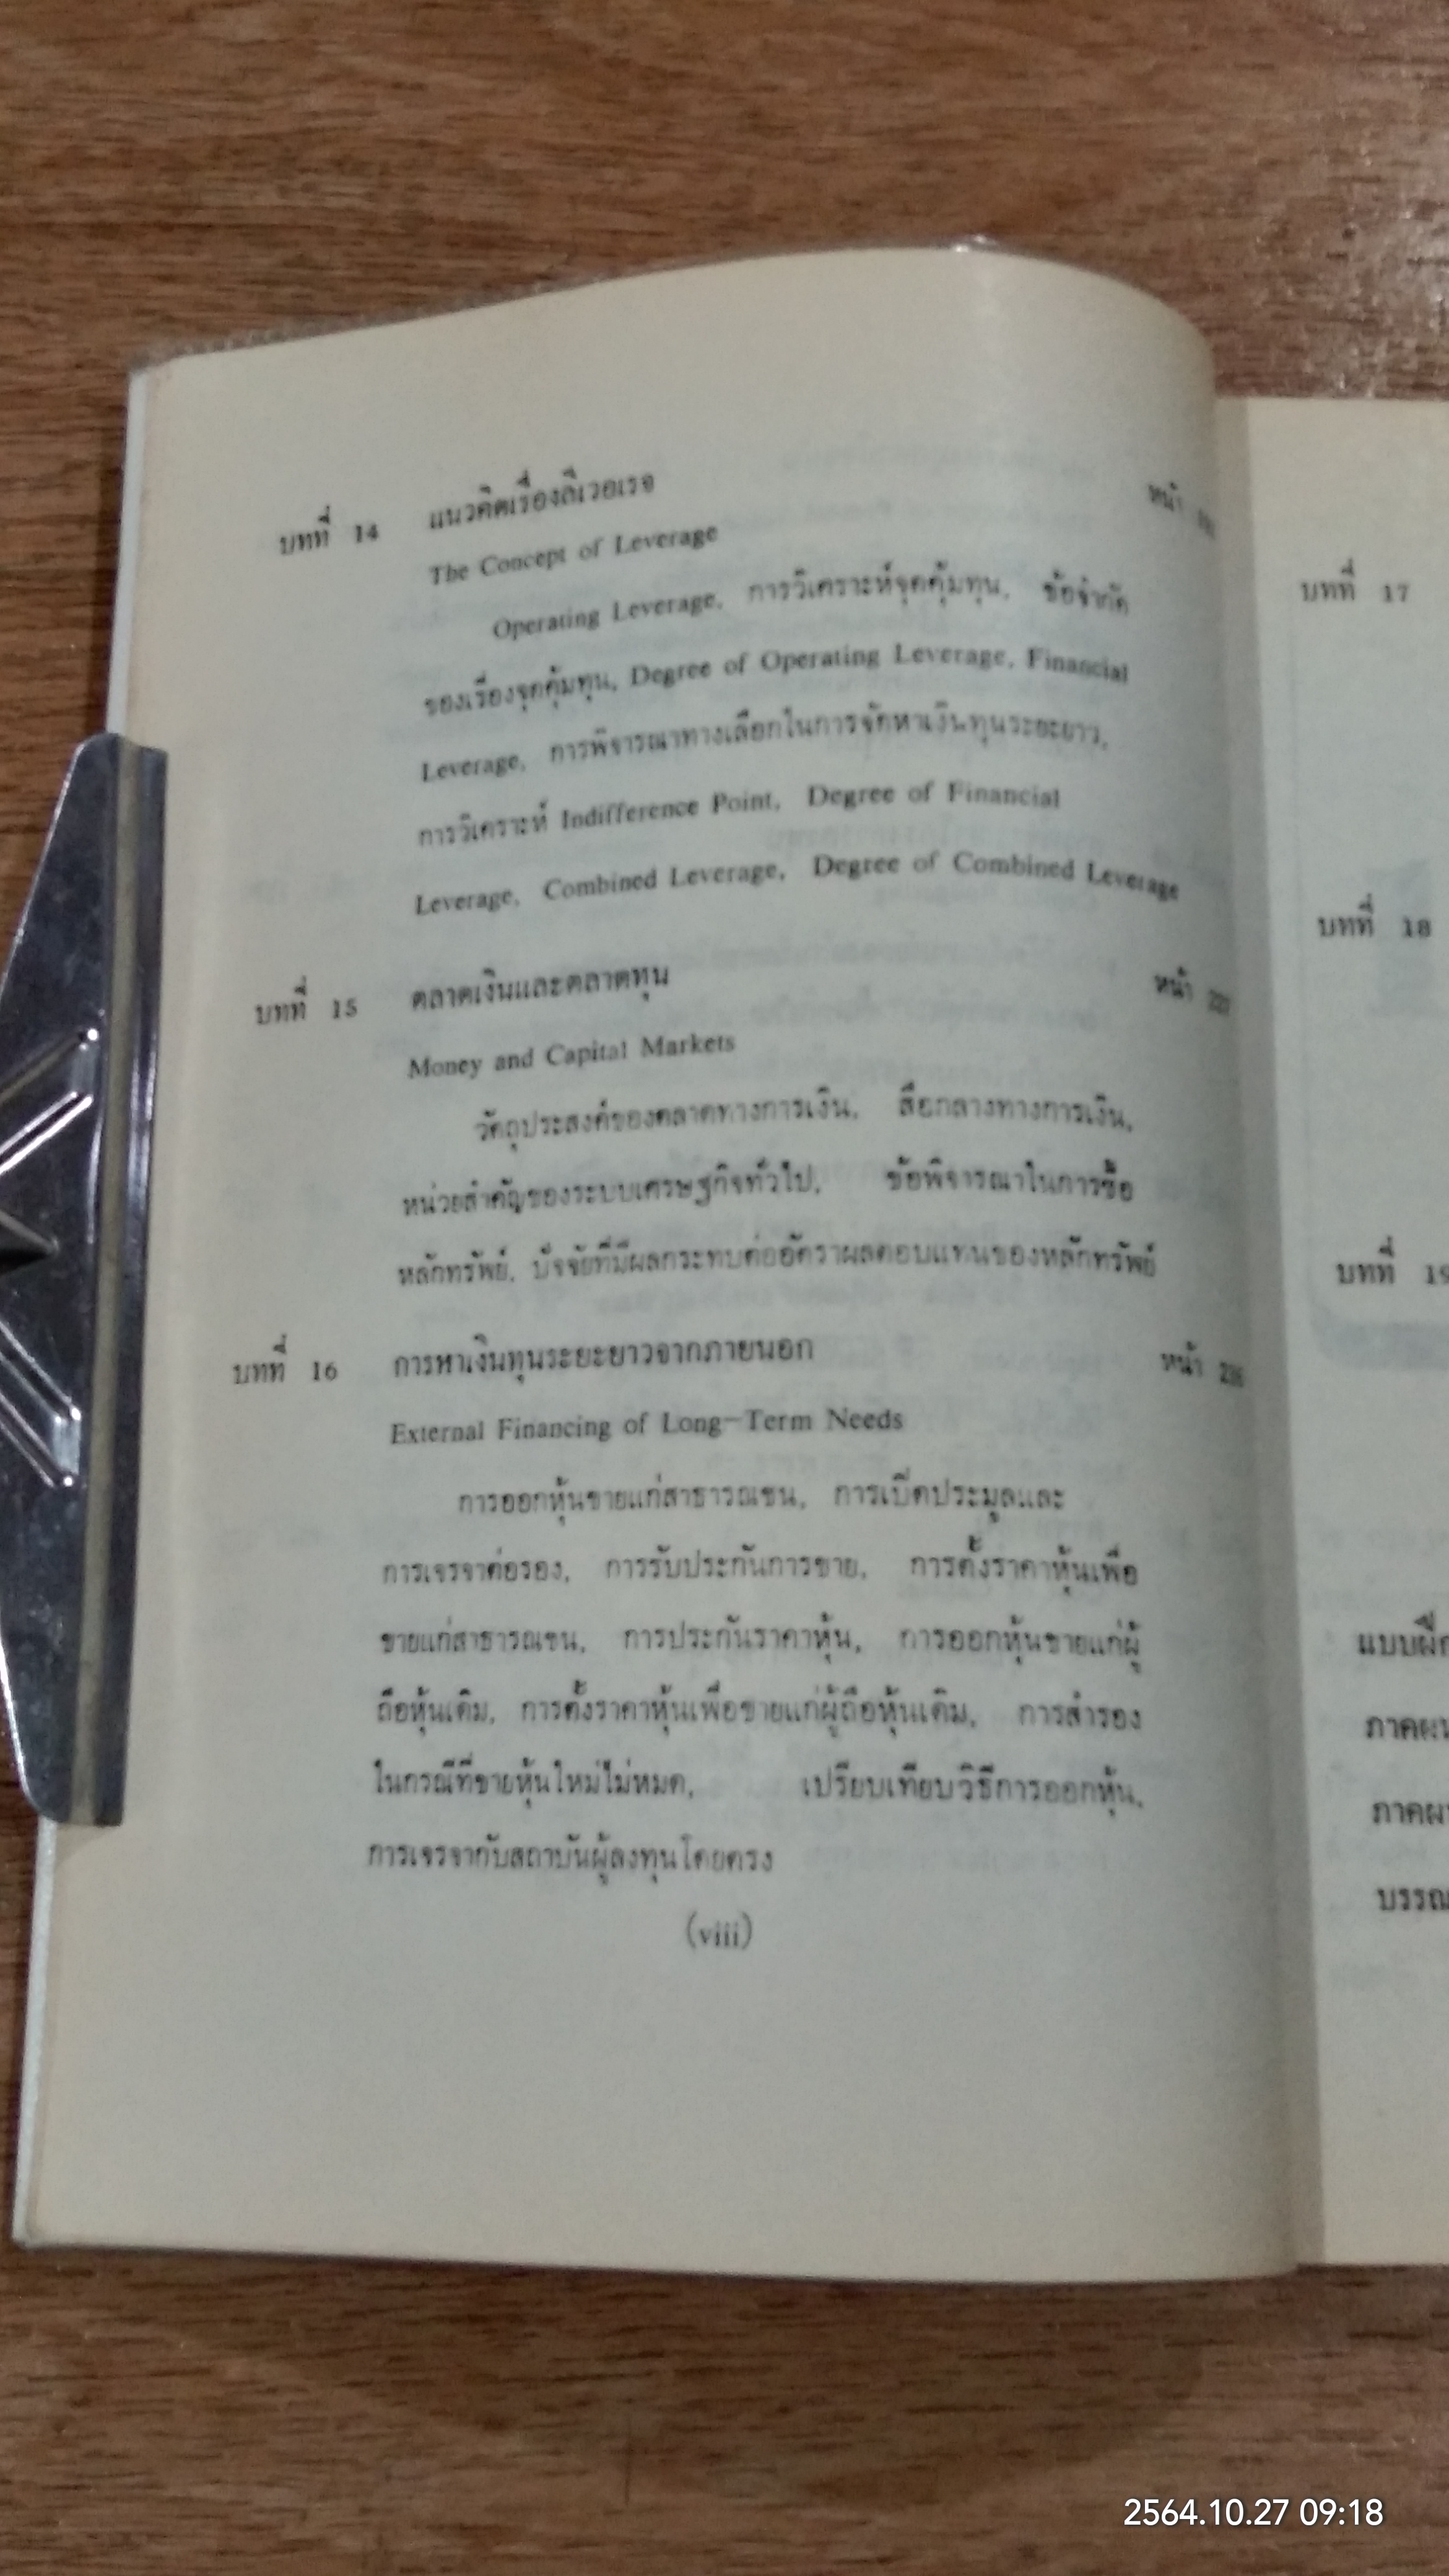 บทที่ 14 แนวคิดเรื่องลีเวอเรจ หน้า
The Concept of Leverage
Operating Leverage, การวิเคราะห์จุดคุ้มทุน, ข้อจำกัด
ของเรื่องจุดคุ้มทุน, Degree of Operating Leverage, Financial
Leverage, การพิจารณาทางเลือกในการจัดหาเงินทุนระยะยาว,
การวิเคราะห์ Indifference Point, Degree of Financial
Leverage, Combined Leverage, Degree of Combined Leverage
บทที่ 15 ตลาดเงินและตลาดทุน หน้า
Money and Capital Markets
วัตถุประสงค์ของตลาดทางการเงิน, สื่อกลางทางการเงิน,
หน่วยสำคัญของระบบเศรษฐกิจทั่วไป, ข้อพิจารณาในการซื้อ
หลักทรัพย์, ปัจจัยที่มีผลกระทบต่ออัตราผลตอบแทนของหลักทรัพย์
บทที่ 16 การหาเงินทุนระยะยาวจากภายนอก หน้า
External Financing of Long-Term Needs
การออกหุ้นขายแก่สาธารณชน, การเปิดประมูลและ
การเจรจาต่อรอง, การรับประกันการขาย, การตั้งราคาหุ้นเพื่อ
ขายแก่สาธารณชน, การประกันราคาหุ้น, การออกหุ้นขายแก่ผู้
ถือหุ้นเดิม, การตั้งราคาหุ้นเพื่อขายแก่ผู้ถือหุ้นเดิม, การสำรอง
ในกรณีที่ขายหุ้นใหม่ไม่หมด, เปรียบเทียบวิธีการออกหุ้น,
การเจรจากับสถาบันผู้ลงทุนโดยตรง
(viii)
บทที่ 17
บทที่ 18
บทที่ 19
2564.10.27 09:18